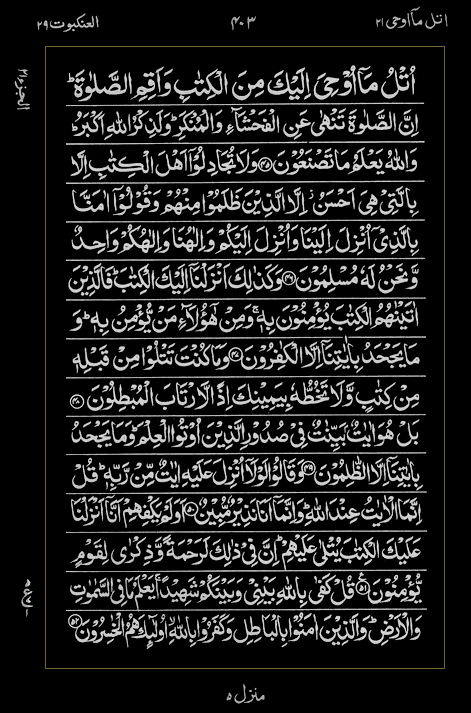 اتل مآاوحی ۲۱
۴۰۳
العنکبوت ۲۹
اُتْلُ مَاۤ اُوْحِیَ اِلَیْكَ مِنَ الْكِتٰبِ وَاَقِمِ الصَّلٰوةَ ؕ
اِنَّ الصَّلٰوةَ تَنْهٰی عَنِ الْفَحْشَآءِ وَالْمُنْكَرِ ؕ وَلَذِكْرُ اللّٰهِ اَكْبَرُ ؕ
وَاللّٰهُ یَعْلَمُ مَا تَصْنَعُوْنَ ﴿۴۵﴾ وَلَا تُجَادِلُوْۤا اَهْلَ الْكِتٰبِ اِلَّا
بِالَّتِیْ هِیَ اَحْسَنُ ۖ اِلَّا الَّذِیْنَ ظَلَمُوْا مِنْهُمْ وَقُوْلُوْۤا اٰمَنَّا
بِالَّذِیْۤ اُنْزِلَ اِلَیْنَا وَاُنْزِلَ اِلَیْكُمْ وَاِلٰهُنَا وَاِلٰهُكُمْ وَاحِدٌ
وَّنَحْنُ لَهٗ مُسْلِمُوْنَ ﴿۴۶﴾ وَكَذٰلِكَ اَنْزَلْنَاۤ اِلَیْكَ الْكِتٰبَ ؕ فَالَّذِیْنَ
اٰتَیْنٰهُمُ الْكِتٰبَ یُؤْمِنُوْنَ بِهٖ ۚ وَمِنْ هٰۤؤُلَآءِ مَنْ یُّؤْمِنُ بِهٖ ؕ وَ
مَا یَجْحَدُ بِاٰیٰتِنَاۤ اِلَّا الْكٰفِرُوْنَ ﴿۴۷﴾ وَمَا كُنْتَ تَتْلُوْا مِنْ قَبْلِهٖ
مِنْ كِتٰبٍ وَّلَا تَخُطُّهٗ بِیَمِیْنِكَ اِذًا لَّارْتَابَ الْمُبْطِلُوْنَ ﴿۴۸﴾
بَلْ هُوَ اٰیٰتٌۢ بَیِّنٰتٌ فِیْ صُدُوْرِ الَّذِیْنَ اُوْتُوا الْعِلْمَ ؕ وَمَا یَجْحَدُ
بِاٰیٰتِنَاۤ اِلَّا الظّٰلِمُوْنَ ﴿۴۹﴾ وَقَالُوْا لَوْلَاۤ اُنْزِلَ عَلَیْهِ اٰیٰتٌ مِّنْ رَّبِّهٖ ؕ قُلْ
اِنَّمَا الْاٰیٰتُ عِنْدَ اللّٰهِ ؕ وَاِنَّمَاۤ اَنَا نَذِیْرٌ مُّبِیْنٌ ﴿۵۰﴾ اَوَلَمْ یَكْفِهِمْ اَنَّاۤ اَنْزَلْنَا
عَلَیْكَ الْكِتٰبَ یُتْلٰی عَلَیْهِمْ ؕ اِنَّ فِیْ ذٰلِكَ لَرَحْمَةً وَّذِكْرٰی لِقَوْمٍ
یُّؤْمِنُوْنَ ﴿۵۱﴾ قُلْ كَفٰی بِاللّٰهِ بَیْنِیْ وَبَیْنَكُمْ شَهِیْدًا ۚ یَعْلَمُ مَا فِی السَّمٰوٰتِ
وَالْاَرْضِ ؕ وَالَّذِیْنَ اٰمَنُوْا بِالْبَاطِلِ وَكَفَرُوْا بِاللّٰهِ ۙ اُولٰٓئِكَ هُمُ الْخٰسِرُوْنَ ﴿۵۲﴾
الجزء ۲۱
منزل ۵